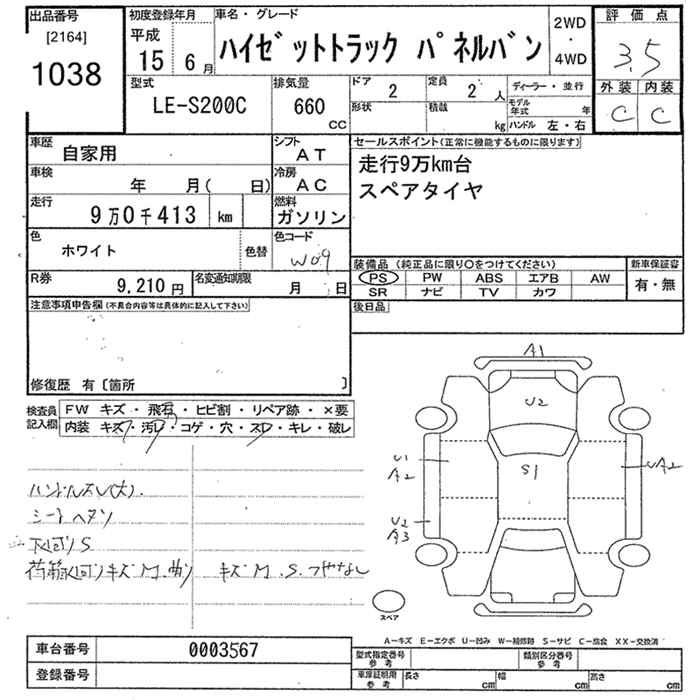 出品番号
[2164]
1038
初度登録年月
平成
15 6月
車名・グレード
ハイゼットトラック パネルバン
2WD
・
4WD
評価点
3.5
外装 内装
C C
型式
LE-S200C
排気量
660
CC
ドア 2
形状
定員 2 人
積載 kg
ディーラー・並行
モデル年式 年
ハンドル 左・右
車歴 自家用
シフト AT
車検 年 月( 日)
冷房 AC
走行 9万0千413 km
燃料 ガソリン
色 ホワイト 色替
色コード W09
R券 9,210円
名変通知期限 月 日
セールスポイント(正常に機能するものに限ります)
走行9万km台
スペアタイヤ
装備品(純正品に限り〇をつけてください)
PS PW ABS エアB AW
SR ナビ TV カワ
新車保証書
有・無
後日品
注意事項申告欄(不具合内容等は具体的に記入して下さい)
修復歴 有〔箇所 〕
検査員記入欄
FW キズ・飛石・ヒビ割・リペア跡・×要
内装 キズ・汚レ・コゲ・穴・スレ・キレ・破レ
ハンドルスレ(大).
シートヘタリ
下廻りS
荷箱下廻りキズM.曲り キズM.S.つやなし
A1
U2
S1
U1
A2
UA2
U2
A3
スペア
A-キズ E-エクボ U-凹み W-補修跡 S-サビ C-腐食 XX-交換済
車台番号 0003567
登録番号
型式指定番号 参考
類別区分番号 参考
車庫証明用 参考
長さ cm 幅 cm 高さ cm